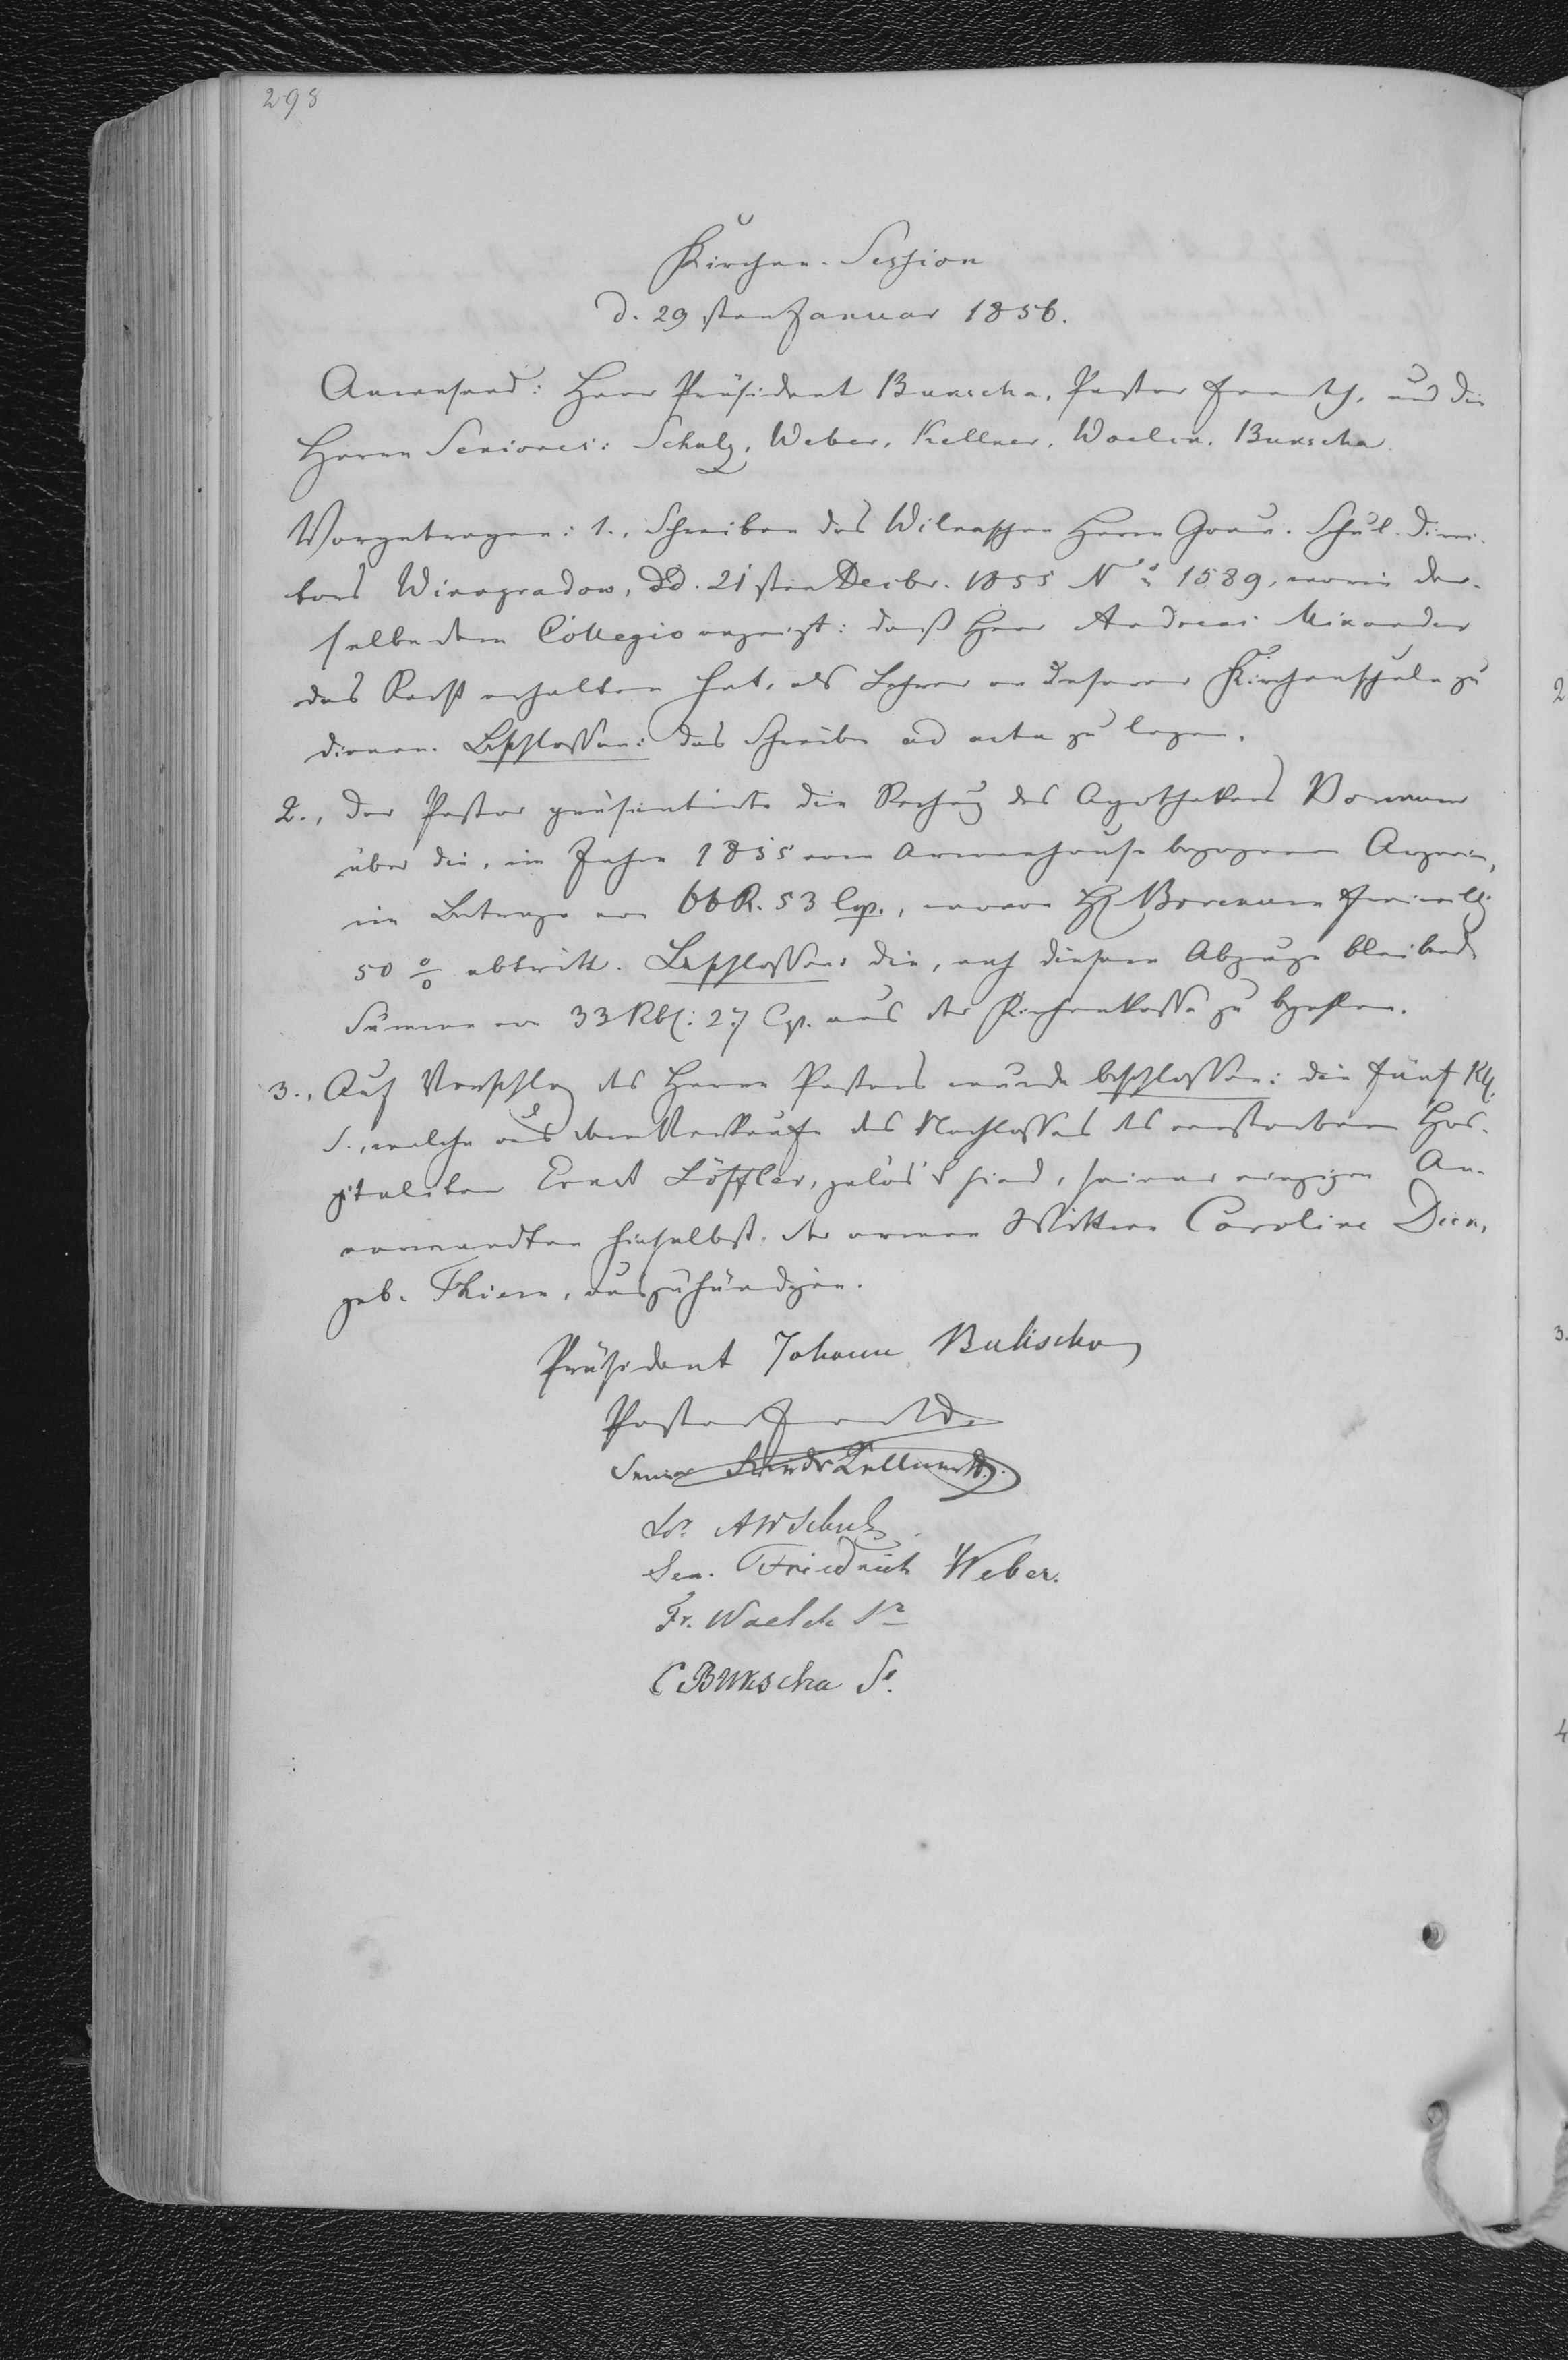 298
Kirchen-Session
d. 29sten Januar 1856.
Anwesend: Herr Präsident Bukscha, Pastor und die
Herrn Seniores: Schulz, Weber, Kellner, Waelck, Bukscha.
Vorgetragen: 1., Schreiben des Wilnaschen Herrn Gouv. Schul-Direc-
tors Winogradow, dd. 21sten Decbr. 1855 No 1589, worin der-
selbe dem Collegio anzeigt: daß Herr Andreas Mixander
das Recht erhalten hat, als Lehrer an unserer Kirchenschule zu
dienen. Beschlossen: das Schreiben ad acta zu legen.
2., Der Pastor präsentirte die Rechng des Apothekers
über die, im Jahre 1855 vom Armenhause bezogenen Arzenein,
im Betrage von 66 R. 53 Cop., wovon H freiwillig
50 % abtritt. Beschlossen: die, nach diesem Abzuge bleibende
Summe von 33 Rbl: 27 Cp. aus der Kirchenkasse zu bezahlen.
3., Auf Vorschlag des Herrn Pastors wurde beschlossen: die fünf Rbl.
S., welche aus dem Verkaufe des Nachlasses des verstorbenen Hos-
pitaliten Ernst Löffler, gelös't sind, seiner einzigen An-
verwandten hieselbst, der armen Wittwe Caroline
geb. Thiem, auszuhändigen.
Präsident Johann Bukscha
Pastor
Senior Kellner
Sr. AW Schulz
Sen. Friedrich Weber.
Fr. Waelck Sr
C Bukscha Sr.
2
3.
4